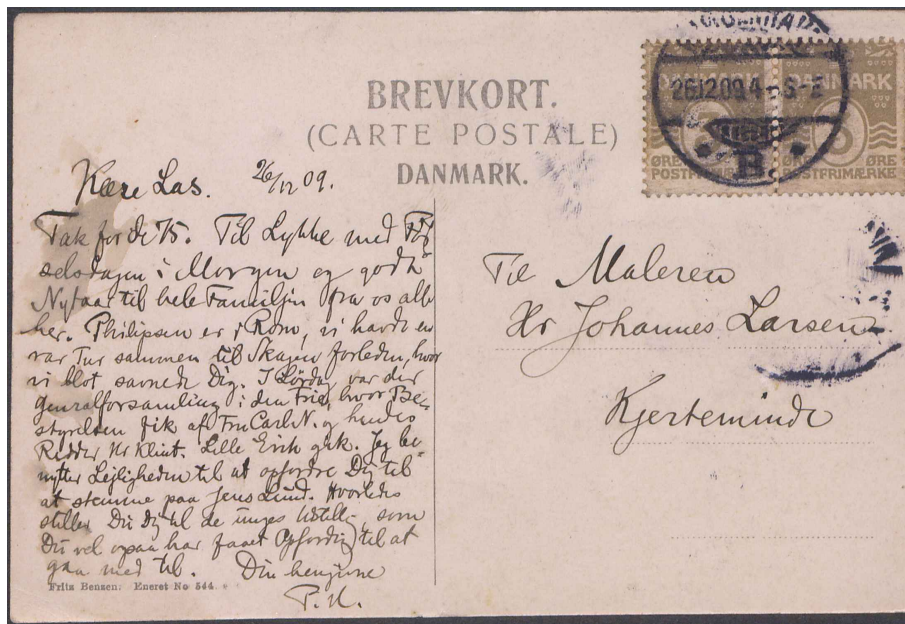 BREVKORT.
(CARTE POSTALE)
DANMARK.
26.12.09.4-5-E
B
DANMARK DANMARK
ØRE ØRE ØRE
POSTFRIMÆRKE POSTFRIMÆRKE
Kære Las. 26/12 09.
Tak for de 75. Til Lykke med Fød
selsdagen i Morgen og godt
Nytaar til hele Familjen fra os alle
her. Philipsen er i Rom, vi havde en
rar Tur sammen til Skagen forleden, hvor
vi blot savnede Dig. I Lördag var der
Generalforsamling i den Frie, hvor Be-
styrelsen fik af Fru Carl N. og hendes
Ridder Hr Klint. Lille Erik gik. Jeg be-
nytter Lejligheden til at opfordre Dig til
at stemme paa Jens Lund. Hvorledes
stiller Du Dig til de unges Udstill-, som
Du vel ogsaa har faaet Opfordring til at
gaa med til. Din hengivne
P.H.
Fritz Bensen. Eneret No 544.
Til Maleren
Hr Johannes Larsen
Kjerteminde